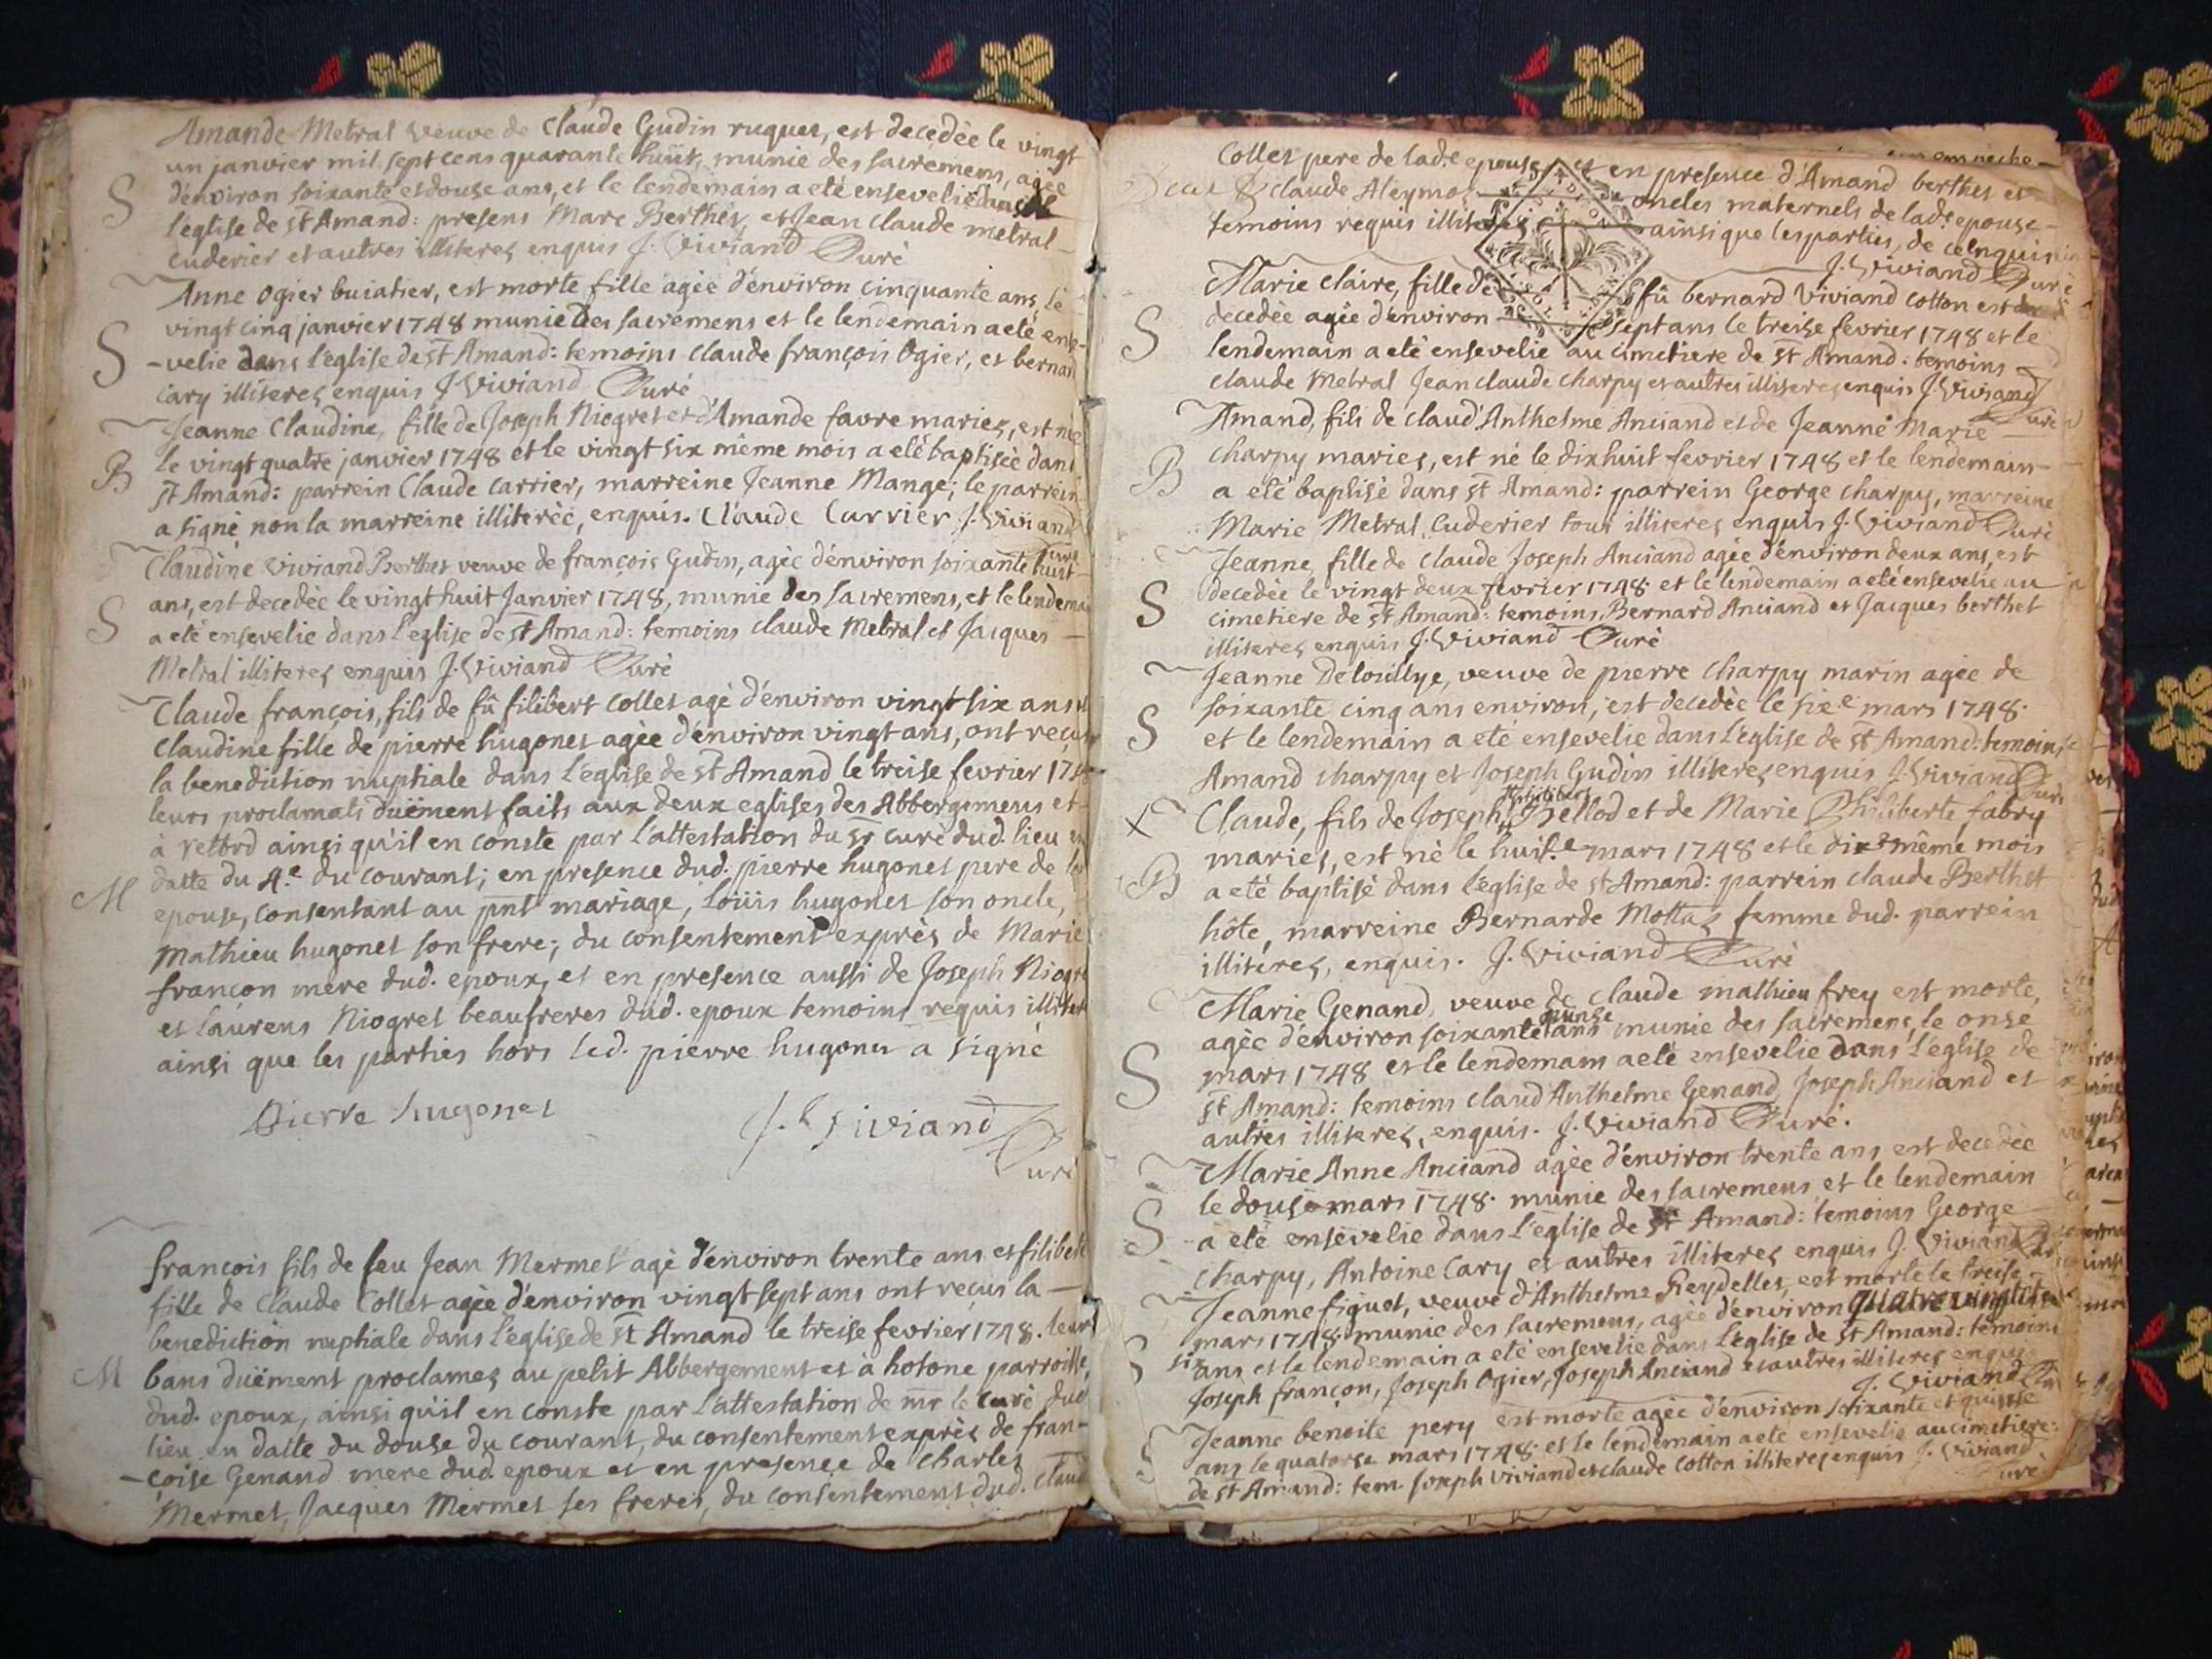 Amande Metral veuve de Claude Gudin ruques, est decedèe le vingt
un janvier mil sept cens quarante huit, munie des sacremens, agèe
S
d'environ soixante et douse ans, et le lendemain a etè ensevelie dans
l'église de st Amand: presens Marc Berthet, et Jean claude metral
cuderier et autres illiteres enquis J. Viviand Curè
Anne Ogier buiatier, est morte fille agèe d'environ cinquante ans, le
vingt cinq janvier 1748 munie des sacremens et le lendemain a etè ense-
S
-velie dans l'eglise de st Amand: temoins claude françois Ogier, et bernard
Cary illiteres enquis J. Viviand Curè
Jeanne Claudine, fille de Joseph Niogret et d'Amande favre mariez, est nèe
B
le vingt quatre janvier 1748 et le vingt six même mois a etè baptisèe dans
st Amand: parrein Claude Carrier, marreine Jeanne Mange; le parrein
a signè non la marreine illiterèe, enquis. Claude Carrier J. Viviand
Curè
Claudine Viviand Berthet veuve de françois Gudin, agèe d'environ soixante huit
ans, est decedèe le vingt huit Janvier 1748, munie des sacremens, et le lendemain
S
a etè ensevelie dans l'eglise de st Amand: temoins claude Metral et Jacques
Metral illiteres enquis J. Viviand Curè
Claude françois, fils de fû filibert Collet agè d'environ vingt six ans et
Claudine fille de pierre hugonet agèe d'environ vingt ans, ont reçu
la benediction nuptiale dans l'eglise de st Amand le treise fevrier 1748
leurs proclamats duëment faits aux deux eglises des Abbergemens et
à retord ainsi qu'il en conste par l'attestation du sr curè dud. lieu en
datte du 4.e du courant; en presence dud. pierre hugonet pere de lad
M
epouse, consentant au pnt mariage, loüis hugonet son oncle,
Mathieu hugonet son frere; du consentement exprès de Marie
françon mere dud. epoux, et en presence aussi de Joseph Niogret
et laurens Niogret beaufreres dud. epoux temoins requis illiteres
ainsi que les parties hors led. pierre hugonet a signè
Pierre hugonet J. Viviand
Curè
françois fils de feu Jean Mermet agè d'environ trente ans et filiberte
fille de Claude Collet agèe d'environ vingt sept ans ont reçus la
benediction nuptiale dans l'eglise de st Amand le treise fevrier 1748. leurs
M
bans duëment proclamez au petit Abbergement et à hotone parroisse
dud. epoux, ainsi qu'il en conste par l'attestation de mr le curè dud
lieu en datte du douse du courant, du consentement exprès de fran-
-çoise Genand mere dud. epoux et en presence de Charles
Mermet, Jacques Mermet ses freres, du consentement dud. Claude
Collet pere de lad.e epouse, et en presence d'Amand berthet et
claude Aleymos oncles maternels de lad.e epouse
temoins requis illiteres ainsi que les parties, de ce enquis
J. Viviand Curè
Marie Claire, fille de fû bernard Viviand Cotton est
decedèe agèe d'environ sept ans le treise fevrier 1748 et le
S
lendemain a etè ensevelie au cimetiere de st Amand: temoins
claude Metral Jean claude charpy et autres illiteres enquis J. Viviand
Curè
Amand, fils de claud'Anthelme Anciand et de Jeanne Marie
charpy mariez, est nè le dixhuit fevrier 1748 et le lendemain
B
a etè baptisè dans st Amand: parrein George charpy, marreine
Marie Metral Cuderier tous illiteres enquis J. Viviand Curè
Jeanne, fille de claude Joseph Anciand agèe d'environ deux ans, est
S
decedèe le vingt deux fevrier 1748. et le lendemain a etè ensevelie au
cimetiere de st Amand: temoins Bernard Anciand et Jacques berthet
illiteres enquis J. Viviand Curè
Jeanne Delouillye, veuve de pierre Charpy marin agèe de
soixante cinq ans environ, est decedèe le six.e mars 1748.
S
et le lendemain a etè ensevelie dans l'eglise de st Amand: temoins
Amand charpy et Joseph Gudin illiteres enquis J. Viviand Curè
X
Claude, fils de Joseph Bellod et de Marie Philiberte fabry
mariez, est nè le huit.e mars 1748 et le dix.e même mois
B
a etè baptisè dans l'èglise de st Amand: parrein claude Berthet
hôte, marreine Bernarde Mottaz femme dud. parrein
illiteres, enquis. J. Viviand Curè
Marie Genand, veuve de Claude mathieu frey est morte,
quinse
agèe d'environ soixante ans munie des sacremens, le onse
S
mars 1748 et le lendemain a etè ensevelie dans l'eglise de
st Amand: temoins claud Anthelme Genand, Joseph Anciand et
autres illiteres, enquis. J. Viviand Curè.
Marie Anne Anciand agèe d'environ trente ans est decedèe
le douse mars 1748. munie des sacremens et le lendemain
S
a etè ensevelie dans l'eglise de st Amand: temoins George
Charpy, Antoine Cary et autres illiteres enquis J. Viviand Curè
Jeanne figuet, veuve d'Anthelme Reydellet, est morte le treise
mars 1748. munie des sacremens, agèe d'environ quatre vingt et
S
six ans et le lendemain a etè ensevelie dans l'eglise de st Amand: temoins
Joseph françon, Joseph Ogier, Joseph Anciand et autres illiteres enquis
J. Viviand Curè
Jeanne benoite pery est morte agèe d'environ soixante et quinse
S
ans le quatorse mars 1748. et le lendemain a etè ensevelie au cimetiere
de st Amand: tem. Joseph Viviand et claude Cotton illiteres enquis J. Viviand
Curè